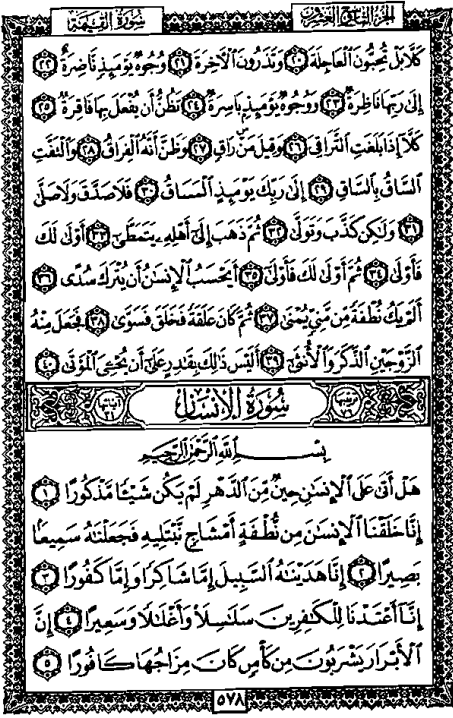 سُورَةُ القِيَامَةِ
الجُزءُ التَّاسِعُ وَالعِشرُونَ
كَلَّا بَلْ تُحِبُّونَ الْعَاجِلَةَ ٢٠ وَتَذَرُونَ الْآخِرَةَ ٢١ وُجُوهٌ يَوْمَئِذٍ نَّاضِرَةٌ ٢٢
إِلَىٰ رَبِّهَا نَاظِرَةٌ ٢٣ وَوُجُوهٌ يَوْمَئِذٍ بَاسِرَةٌ ٢٤ تَظُنُّ أَن يُفْعَلَ بِهَا فَاقِرَةٌ ٢٥
كَلَّا إِذَا بَلَغَتِ التَّرَاقِيَ ٢٦ وَقِيلَ مَنْ ۜ رَاقٍ ٢٧ وَظَنَّ أَنَّهُ الْفِرَاقُ ٢٨ وَالْتَفَّتِ
السَّاقُ بِالسَّاقِ ٢٩ إِلَىٰ رَبِّكَ يَوْمَئِذٍ الْمَسَاقُ ٣٠ فَلَا صَدَّقَ وَلَا صَلَّىٰ
٣١ وَلَٰكِن كَذَّبَ وَتَوَلَّىٰ ٣٢ ثُمَّ ذَهَبَ إِلَىٰ أَهْلِهِ يَتَمَطَّىٰ ٣٣ أَوْلَىٰ لَكَ
فَأَوْلَىٰ ٣٤ ثُمَّ أَوْلَىٰ لَكَ فَأَوْلَىٰ ٣٥ أَيَحْسَبُ الْإِنسَانُ أَن يُتْرَكَ سُدًى ٣٦
أَلَمْ يَكُ نُطْفَةً مِّن مَّنِيٍّ يُمْنَىٰ ٣٧ ثُمَّ كَانَ عَلَقَةً فَخَلَقَ فَسَوَّىٰ ٣٨ فَجَعَلَ مِنْهُ
الزَّوْجَيْنِ الذَّكَرَ وَالْأُنثَىٰ ٣٩ أَلَيْسَ ذَٰلِكَ بِقَادِرٍ عَلَىٰ أَن يُحْيِيَ الْمَوْتَىٰ ٤٠
ترتيبها ٧٦ سُورَةُ الْإِنسَانِ آياتها ٣١
بِسْمِ اللَّهِ الرَّحْمَٰنِ الرَّحِيمِ
هَلْ أَتَىٰ عَلَى الْإِنسَانِ حِينٌ مِّنَ الدَّهْرِ لَمْ يَكُن شَيْئًا مَّذْكُورًا ١
إِنَّا خَلَقْنَا الْإِنسَانَ مِن نُّطْفَةٍ أَمْشَاجٍ نَّبْتَلِيهِ فَجَعَلْنَاهُ سَمِيعًا
بَصِيرًا ٢ إِنَّا هَدَيْنَاهُ السَّبِيلَ إِمَّا شَاكِرًا وَإِمَّا كَفُورًا ٣
إِنَّا أَعْتَدْنَا لِلْكَافِرِينَ سَلَاسِلَا وَأَغْلَالًا وَسَعِيرًا ٤ إِنَّ
الْأَبْرَارَ يَشْرَبُونَ مِن كَأْسٍ كَانَ مِزَاجُهَا كَافُورًا ٥
٥٧٨